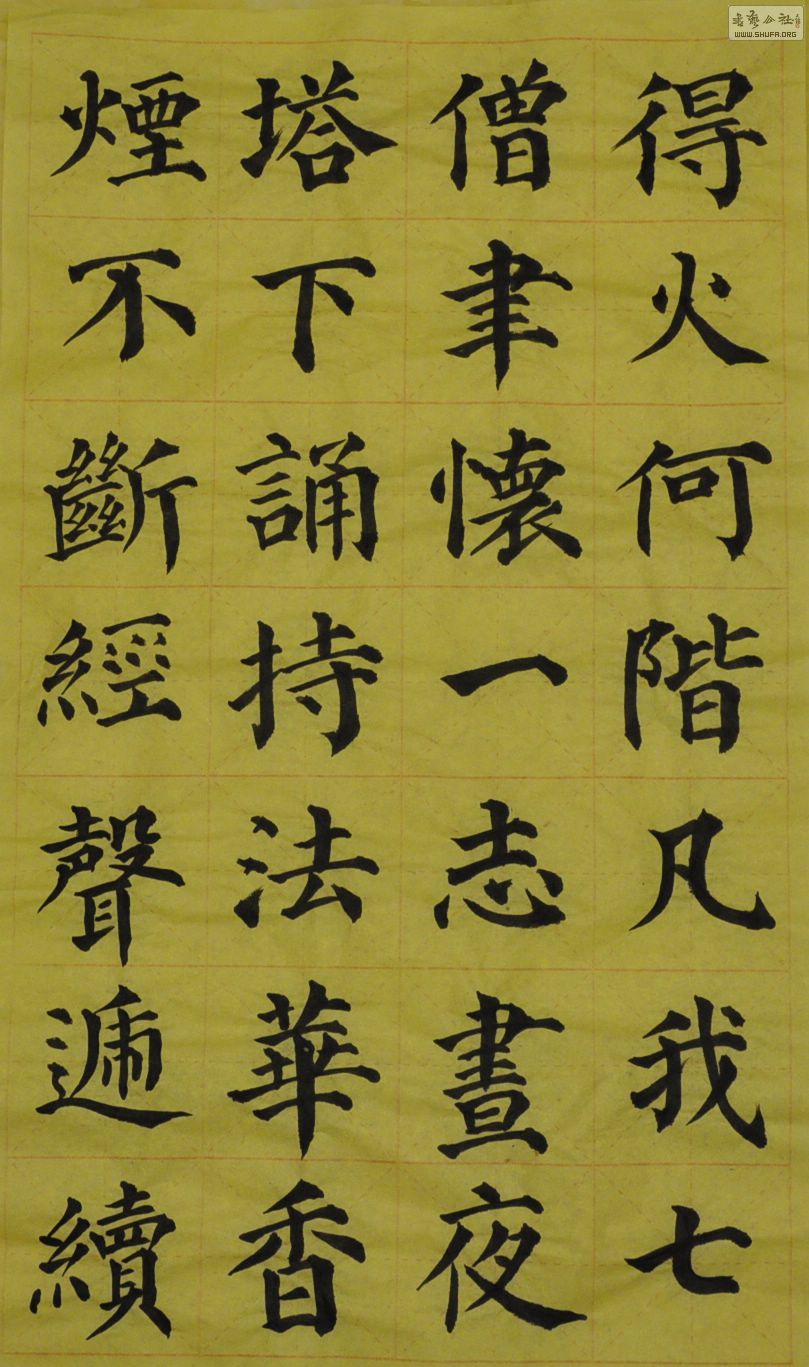 得火何階凡我七
僧聿懷一志晝夜
塔下誦持法華香
煙不斷經聲遞續
WWW.SHUFA.ORG